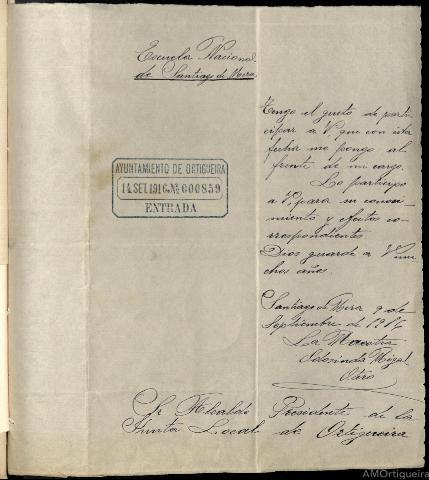 Escuela Nacional
de Santiago de Mera
Tengo el gusto de parti
cipar a V. que con esta
fecha me pongo al
frente de mi cargo.
Lo participo
a V. para su conoci-
miento y efectos co-
rrespondientes.
Dios guarde a V. mu
chos años.
AYUNTAMIENTO DE ORTIGUEIRA
14 SET.1916 Nº 000859
ENTRADA
Santiago de Mera 9 de
Septiembre de 1916
La Maestra
Otero
Sr Alcalde Presidente de la
Junta Local de Ortigueira
AMOrtigueira